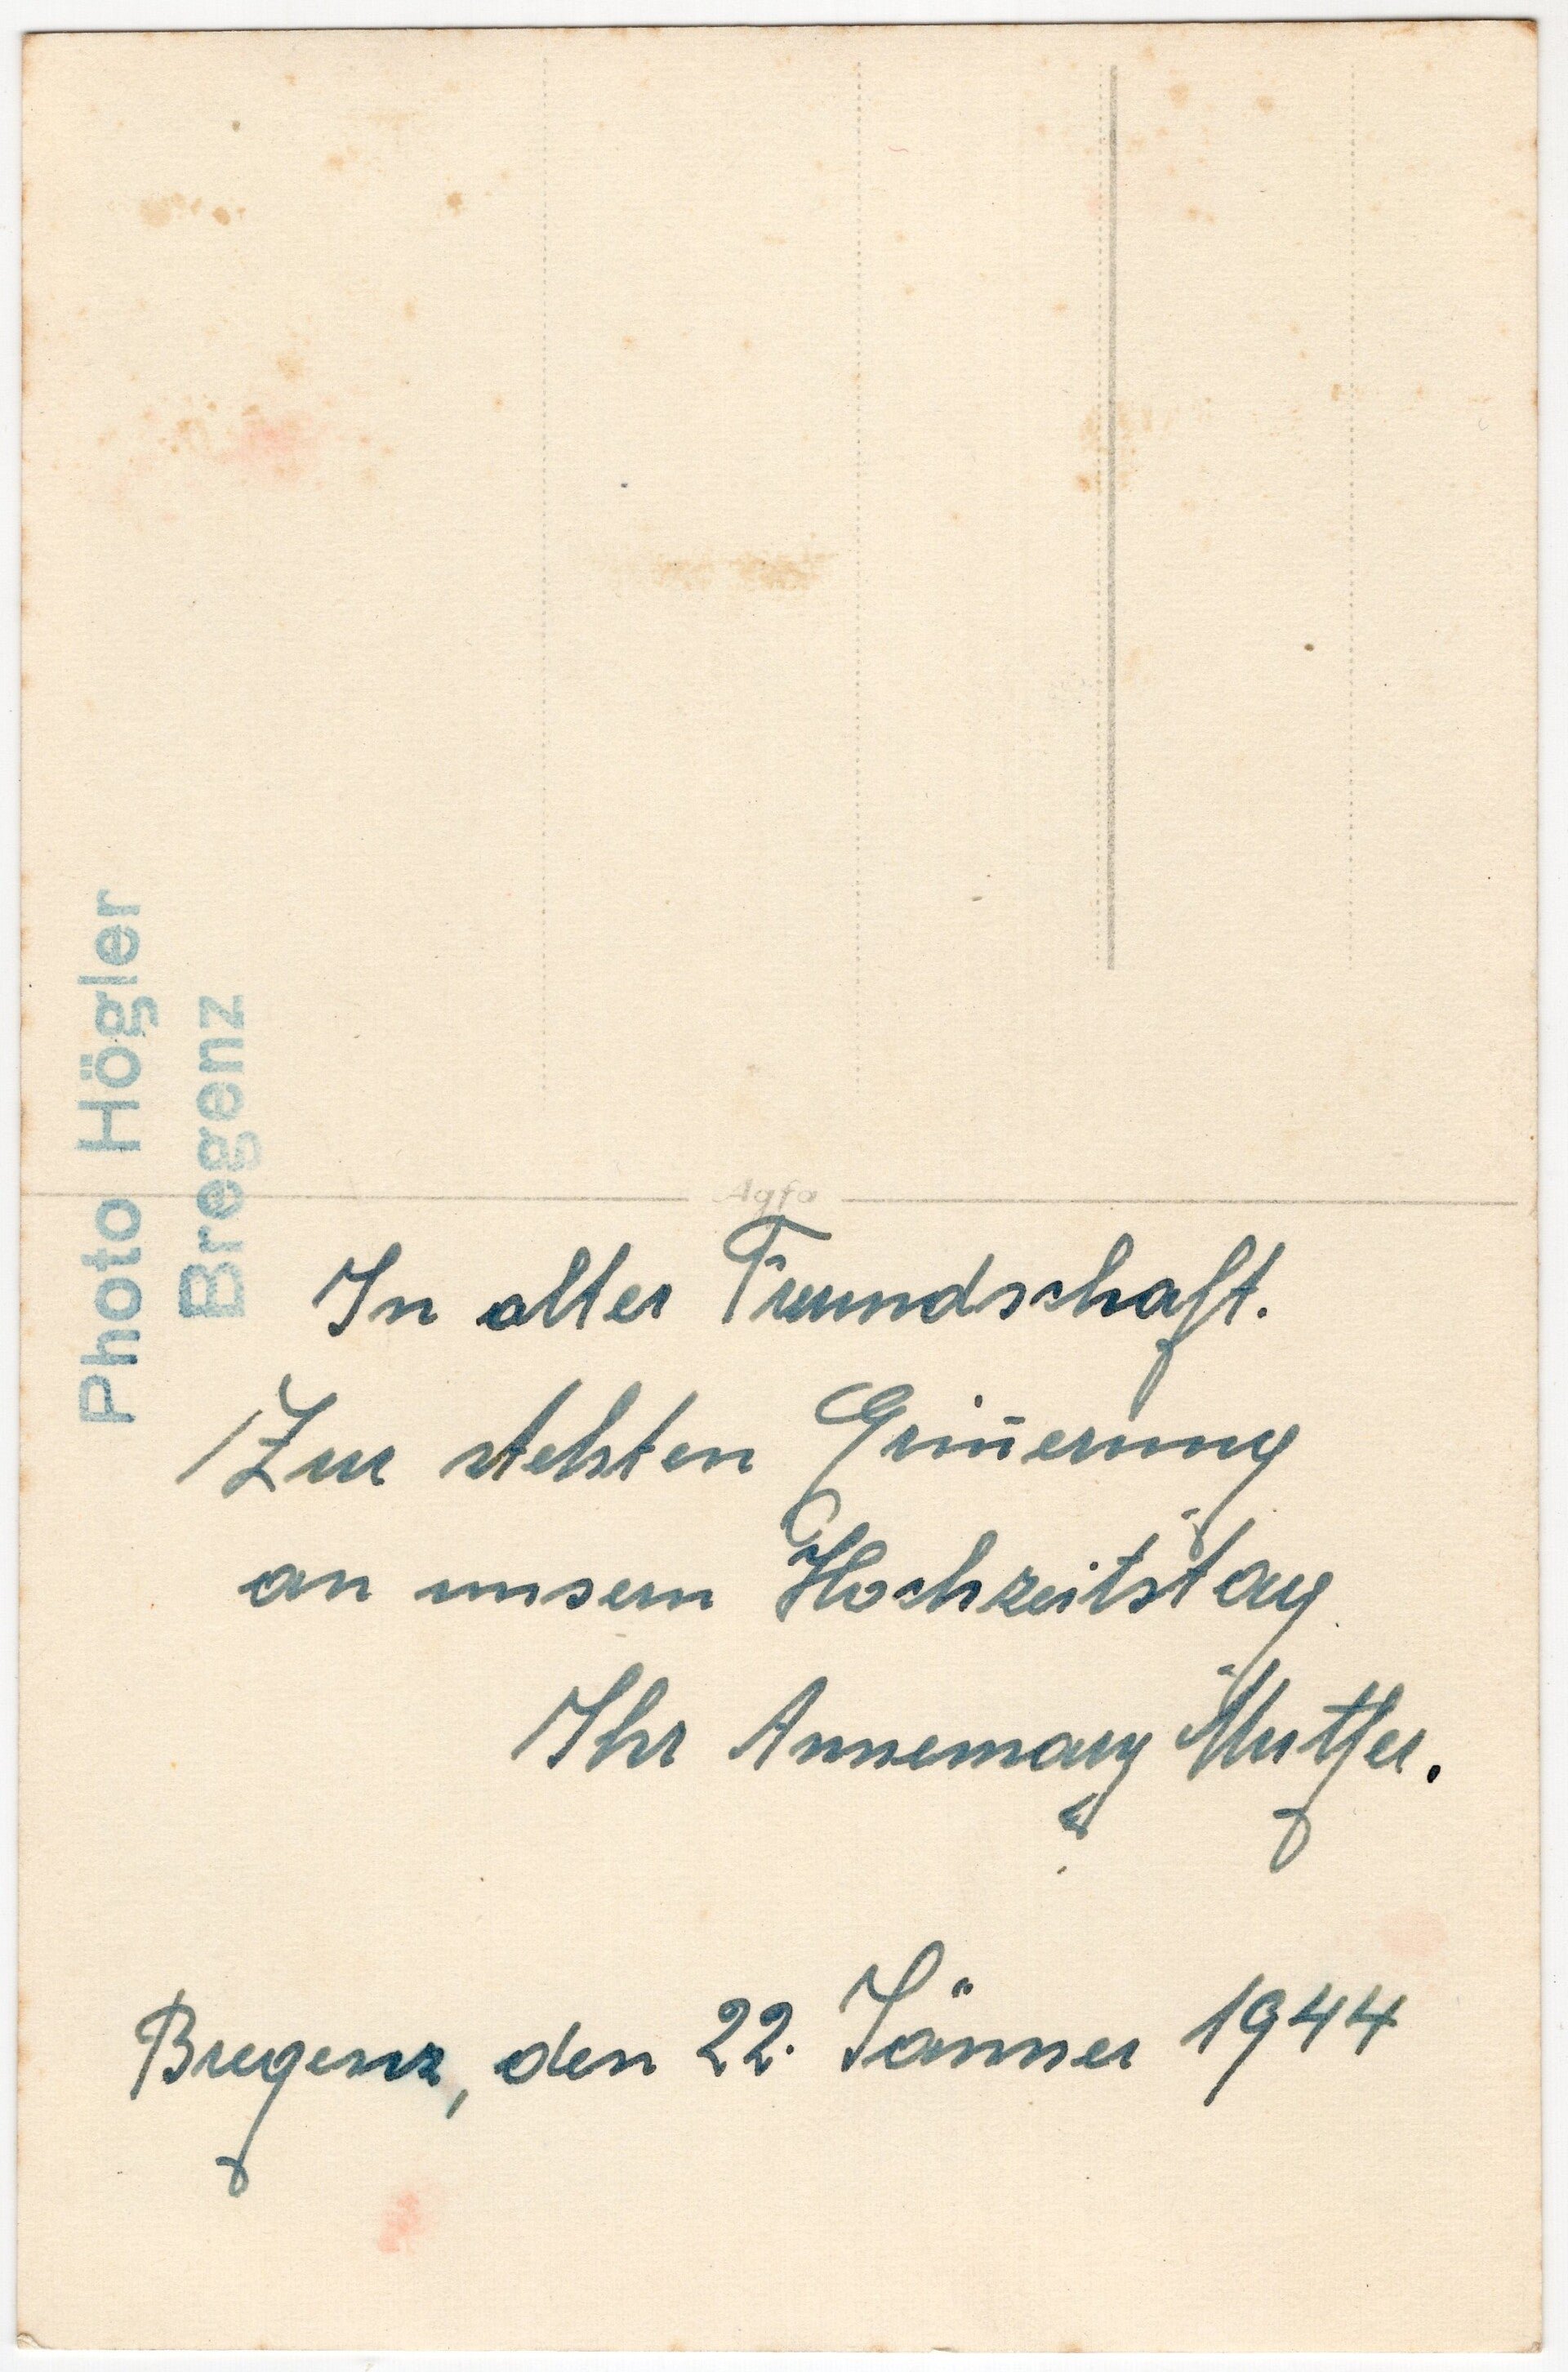 Photo Högler
Bregenz
Agfa
In alter Freundschaft.
Zur steten Erin̄erung
an unsern Hochzeitstag
Ihr Annemary
Bregenz, den 22. Jänner 1944